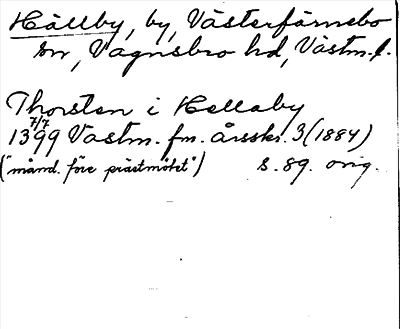 Hällby, by, Västerfärnebo
sn, Vagnsbro hd, Västm. l.
Thorsten i Hellaby
7/7
1399 Västm. fm. årsskr. 3 (1884)
("månd. före prästmötet") s. 89. orig.